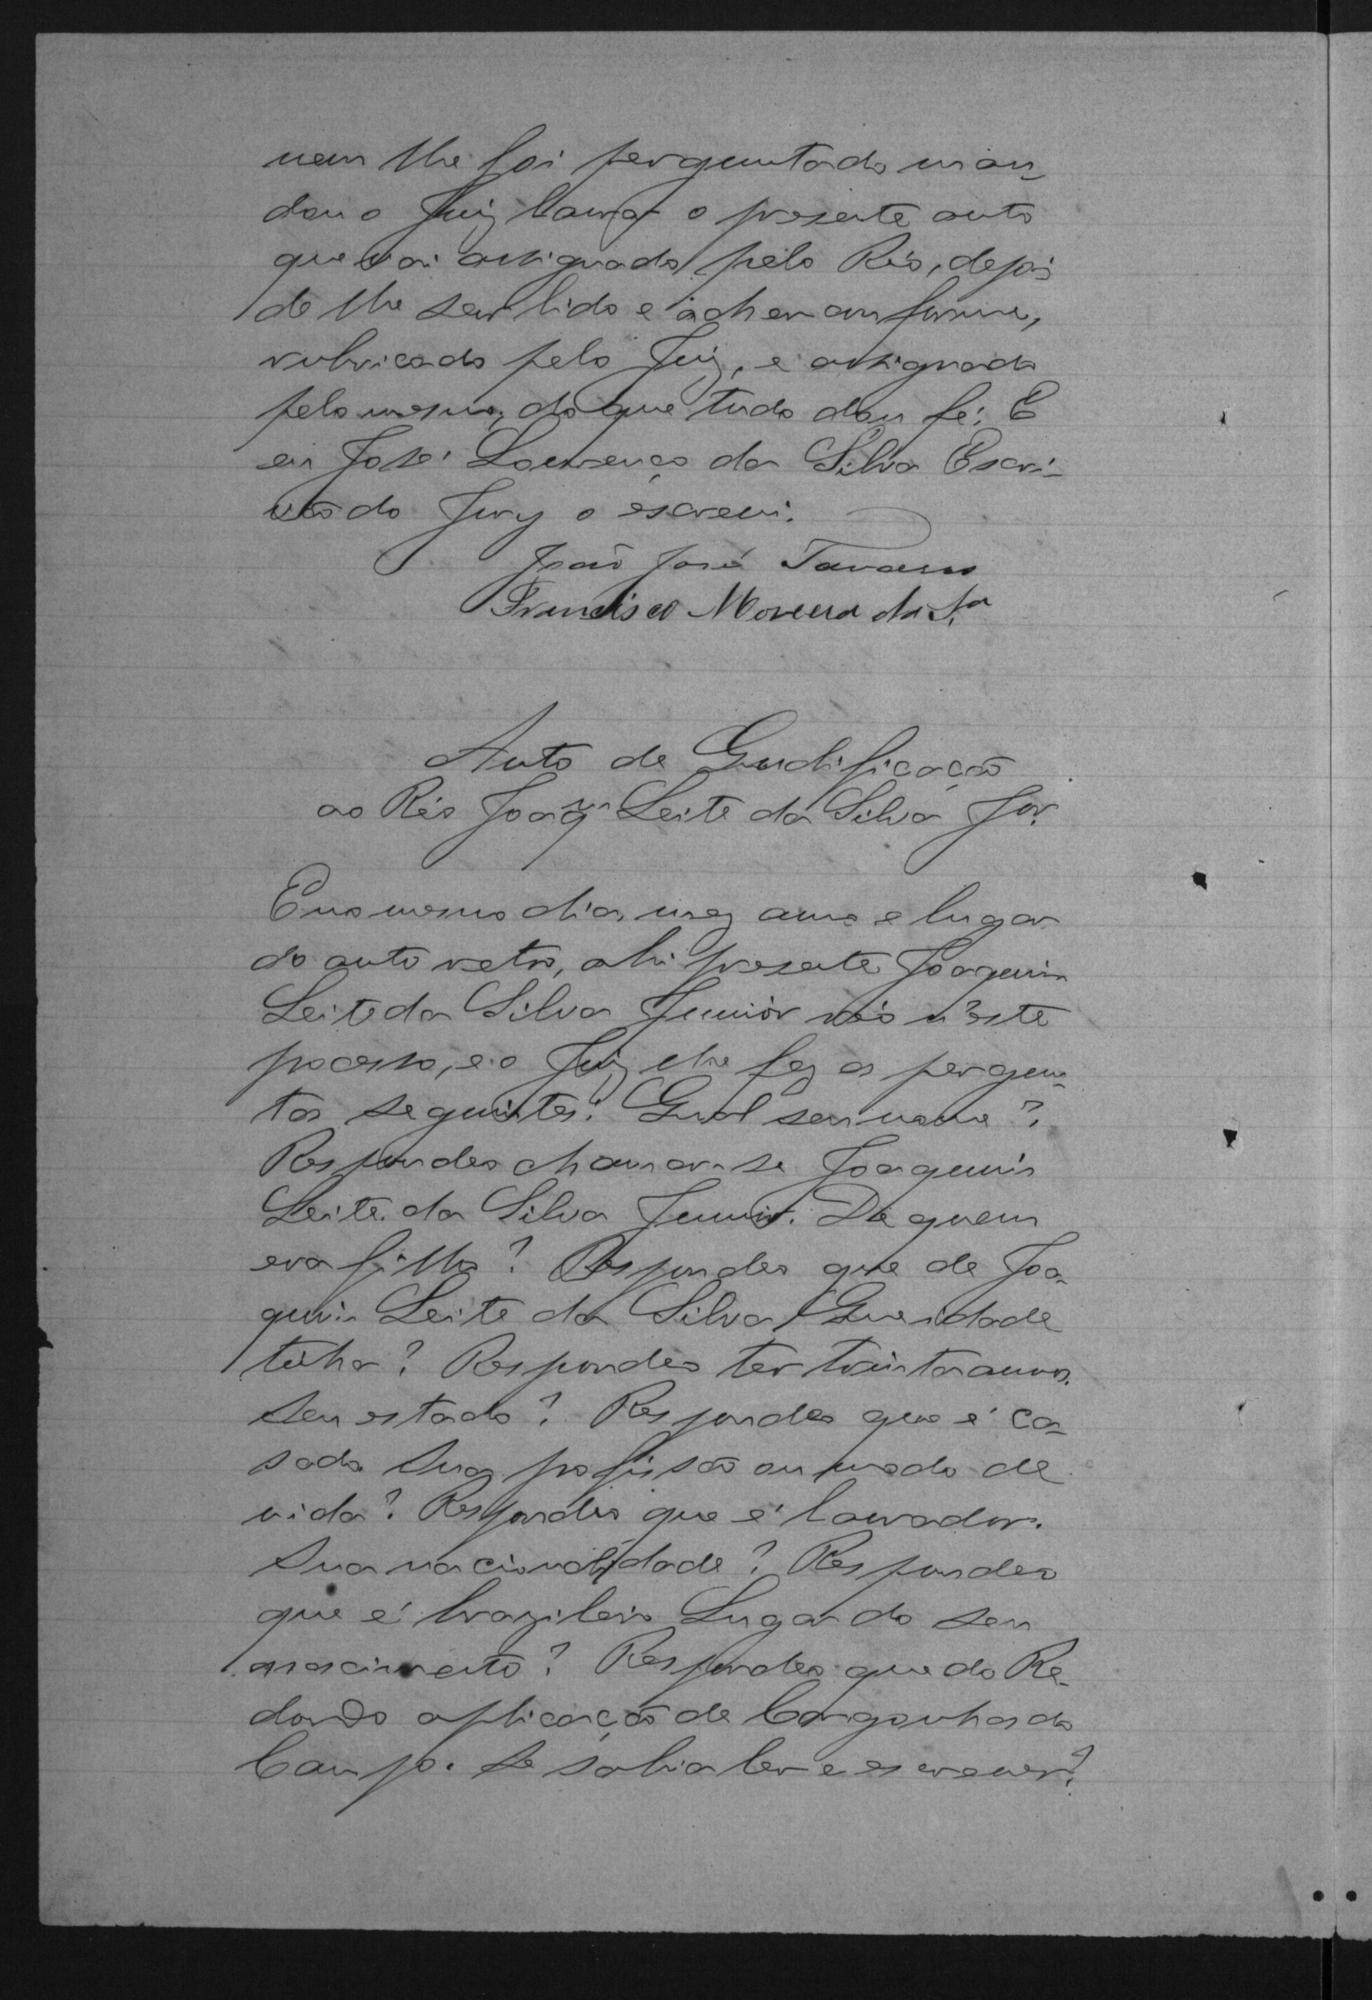 nem lhe foi perguntado man-
dou o Juiz lavrar o presente auto
que vai assignado pelo Réo, depois
de lhe ser lido e achar conforme,
rubricado pelo Juiz, e assignado
pelo mesmo, do que tudo dou fé; E
eu José Lourenço da Silva Escri-
vão do Jury o escrevi.
João José Tavares
Francisco Moreira da S.ª
Auto de Qualificação
ao Réo Joaqm Leite da Silva Jor.
E no mesmo dia, mez, anno e lugar
do auto retro, ahi presente Joaquim
Leite da Silva Junior réo n'este
processo, e o Juiz lhe fez as pergun-
tas seguintes: Qual seu nome?
Respondeo chamar-se Joaquim
Leite da Silva Junior. De quem
era filho? Respondeo que de Joa-
quim Leite da Silva Que idade
tinha? Respondeo ter trinta annos.
Seu estado? Respondeo que é ca-
sado Sua profissão ou modo de
vida? Respondeo que é lavrador.
Sua nacionalidade? Respondeo
que é brazileiro Lugar do seu
nascimento? Respondeo que do Re-
dondo aplicação de Congonhas do
Campo. Se sabia ler e escrever?